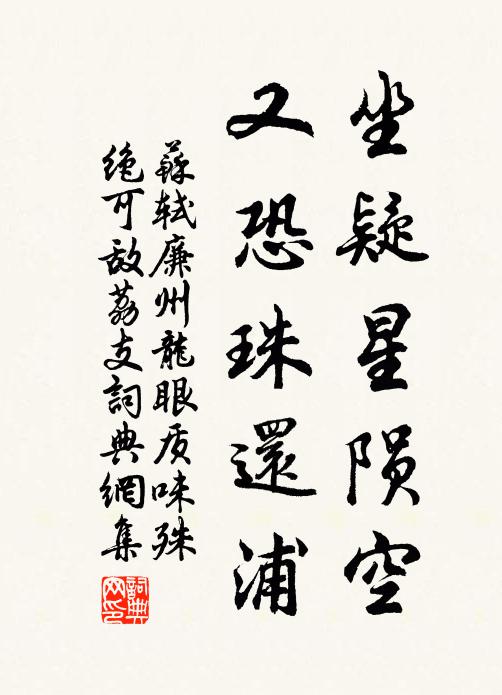 坐疑星陨空
又恐珠還浦
蘇軾廉州龍眼质味殊
绝可敌荔支詞典網集
詞典
网印